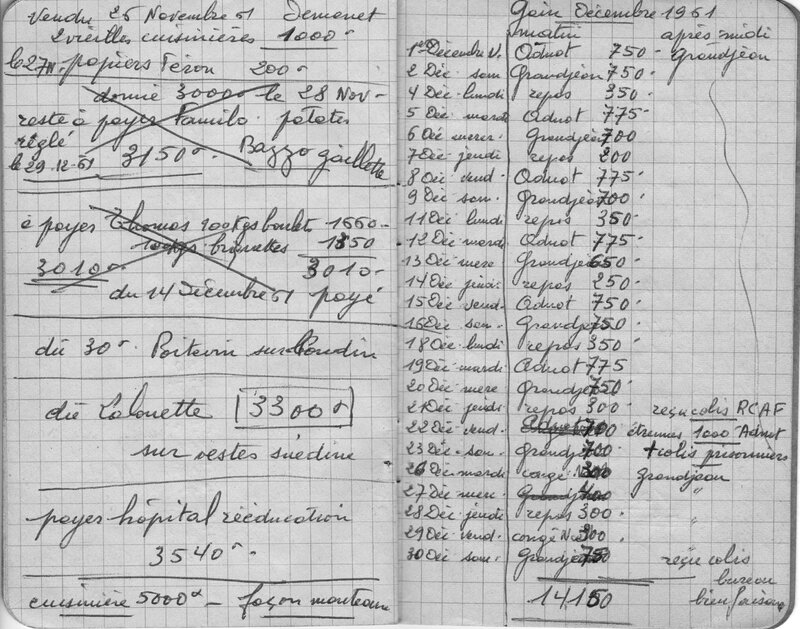 Vendu 26 Novembre 61 Demonet
2 vieilles cuisinières 1000°
le 27 N. papiers Féron 200°
donné 3000° le 28 Nov-
reste à payer Familo. patates
réglé
le 29-12-61 3150° Bazzo gaillette
à payer Thomas 100kgs boulet 1660-
100kgs briquettes 1350
3010° 3010-
du 14 Décembre 61 payé
dû 30° Poitevin sur Boudin
dû Lalouette 3300°
sur vestes suédine
payer hôpital rééducation
3540°
cuisinière 5000° - façon manteau
Gain Décembre 1961
matin après-midi
1er Décembre V. Adnot 750- Grandjéon
2 Déc sam Grandjéon 750-
4 Déc lundi repos 350-
5 Déc mardi Adnot 775-
6 Déc merc. Grandjéon 700
7 Déc jeudi repos 200
8 Déc vend- Adnot 775
9 Déc sam. Grandjéon 700-
11 Déc lundi repos 350-
12 Déc mardi Adnot 775
13 Déc merc Grandjéon 650
14 Déc jeudi repos 250
15 Déc vend. Adnot 750
16 Déc sam. Grandjéon 750-
18 Déc lundi repos 350
19 Déc mardi Adnot 775
20 Déc merc Grandjéon 750
21 Déc jeudi repos 300 reçu colis RCAF
22 Déc vend. Adnot 700 étrennes 1000 Adnot
23 Déc sam. Grandjéon 700 + colis prisonniers
26 Déc mardi congé 300 Grandjéon
27 Déc merc. Grandjéon 400 "
28 Déc jeudi repos 300 "
29 Déc vend. congé 300 "
30 Déc sam. Grandjéon 750 reçu colis
bureau
14150 bienfaisance